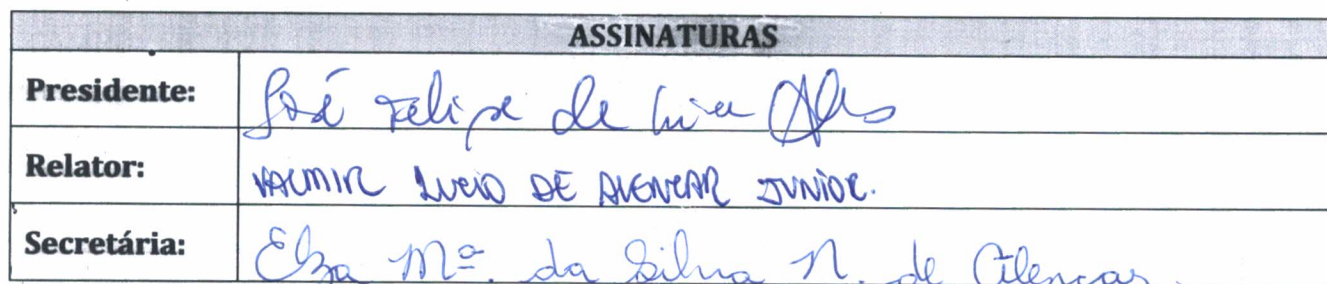 ASSINATURAS
Presidente: José Felipe de Lira Alves
Relator: VALMIR LUCIO DE ALENCAR JUNIOR.
Secretária: Elza Mª. da Silva N. de Alencar.